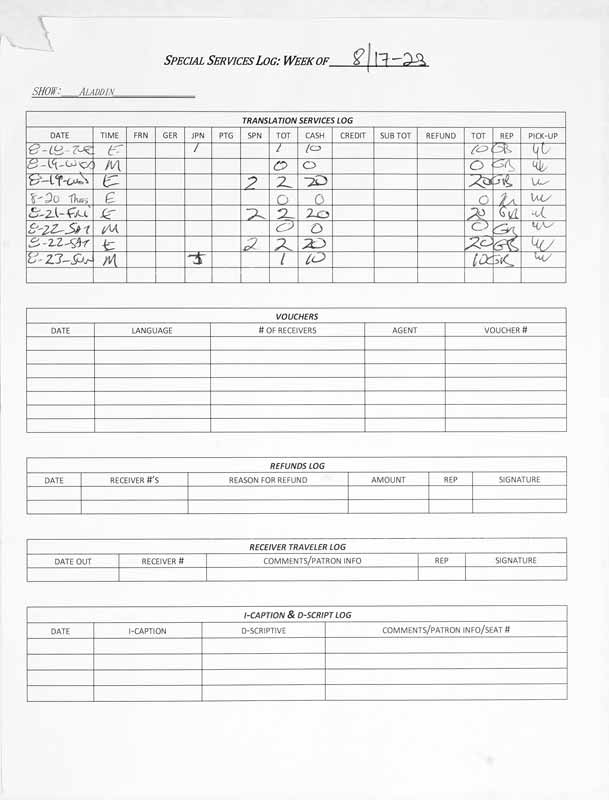 SPECIAL SERVICES LOG: WEEK OF 8/17-23
SHOW: ALADDIN
TRANSLATION SERVICES LOG
DATE TIME FRN GER JPN PTG SPN TOT CASH CREDIT SUB TOT REFUND TOT REP PICK-UP
8-18-TUE E 1 1 10 10 GB
8-19-WED M 0 0 0 GB
8-19-WED E 2 2 20 20 GB
8-20 Thurs E 0 0 0
8-21-FRI E 2 2 20 20 GB
8-22-SAT M 0 0 0 GB
8-22-SAT E 2 2 20 20 GB
8-23-SUN M 1 1 10 10 GB
VOUCHERS
DATE LANGUAGE # OF RECEIVERS AGENT VOUCHER #
REFUNDS LOG
DATE RECEIVER #'S REASON FOR REFUND AMOUNT REP SIGNATURE
RECEIVER TRAVELER LOG
DATE OUT RECEIVER # COMMENTS/PATRON INFO REP SIGNATURE
I-CAPTION & D-SCRIPT LOG
DATE I-CAPTION D-SCRIPTIVE COMMENTS/PATRON INFO/SEAT #